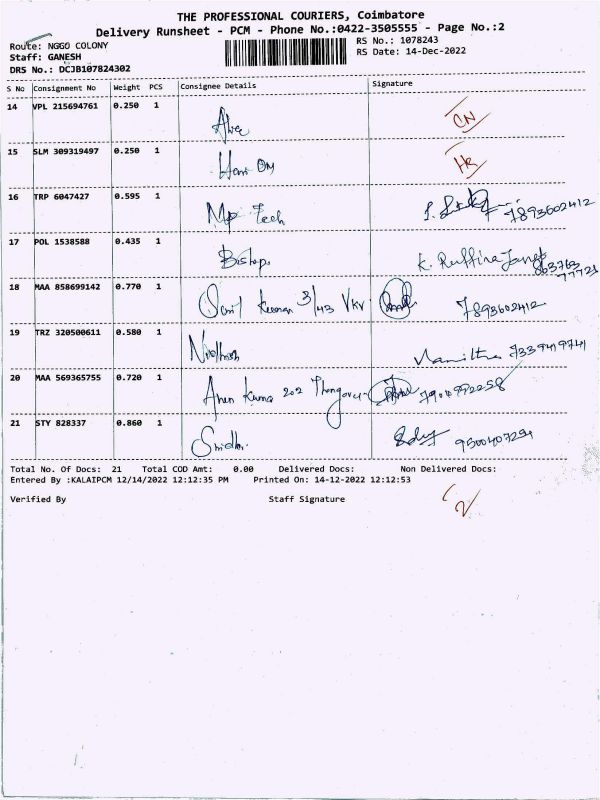 THE PROFESSIONAL COURIERS, Coimbatore
Delivery Runsheet - PCM - Phone No.:0422-3505555 - Page No.:2
Route: NGGO COLONY
RS No.: 1078243
Staff: GANESH
RS Date: 14-Dec-2022
DRS No.: DCJB107824302
S No Consignment No Weight PCS Consignee Details Signature
14 VPL 215694761 0.250 1
CN
15 SLM 309319497 0.250 1
Hari OM
16 TRP 6047427 0.595 1
Mp Tech 7893602412
17 POL 1538588 0.435 1
Bishop. K. Ruffina
18 MAA 858699142 0.770 1
Kumar 3/43 VKV 7893602412
19 TRZ 320500611 0.580 1
7339419741
20 MAA 569365755 0.720 1
Arun Kumar 202
21 STY 828337 0.860 1
Sridhar
Total No. Of Docs: 21 Total COD Amt: 0.00 Delivered Docs: Non Delivered Docs:
Entered By :KALAIPCM 12/14/2022 12:12:35 PM Printed On: 14-12-2022 12:12:53
2
Verified By Staff Signature